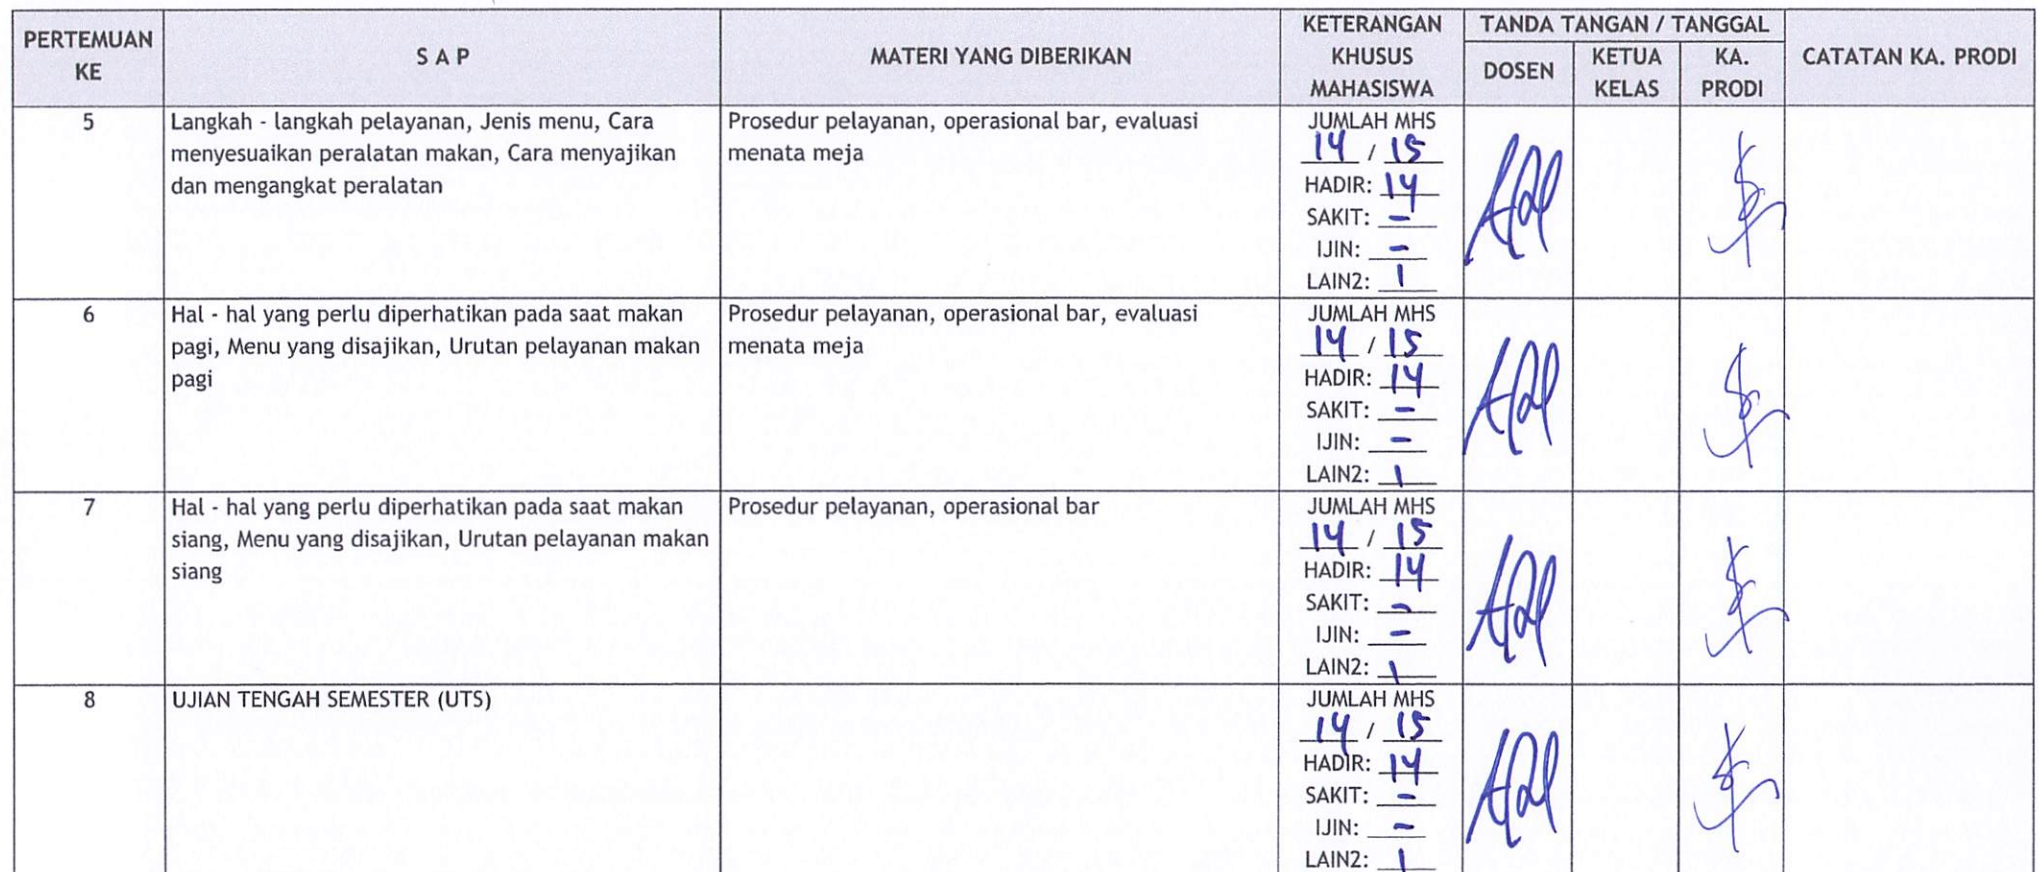 PERTEMUAN
KE
S A P
MATERI YANG DIBERIKAN
KETERANGAN
KHUSUS
MAHASISWA
TANDA TANGAN / TANGGAL
DOSEN
KETUA
KELAS
KA.
PRODI
CATATAN KA. PRODI
5
Langkah - langkah pelayanan, Jenis menu, Cara
menyesuaikan peralatan makan, Cara menyajikan
dan mengangkat peralatan
Prosedur pelayanan, operasional bar, evaluasi
menata meja
JUMLAH MHS
14 / 15
HADIR: 14
SAKIT: -
IJIN: -
LAIN2: 1
6
Hal - hal yang perlu diperhatikan pada saat makan
pagi, Menu yang disajikan, Urutan pelayanan makan
pagi
Prosedur pelayanan, operasional bar, evaluasi
menata meja
JUMLAH MHS
14 / 15
HADIR: 14
SAKIT: -
IJIN: -
LAIN2: 1
7
Hal - hal yang perlu diperhatikan pada saat makan
siang, Menu yang disajikan, Urutan pelayanan makan
siang
Prosedur pelayanan, operasional bar
JUMLAH MHS
14 / 15
HADIR: 14
SAKIT: -
IJIN: -
LAIN2: 1
8
UJIAN TENGAH SEMESTER (UTS)
JUMLAH MHS
14 / 15
HADIR: 14
SAKIT: -
IJIN: -
LAIN2: 1